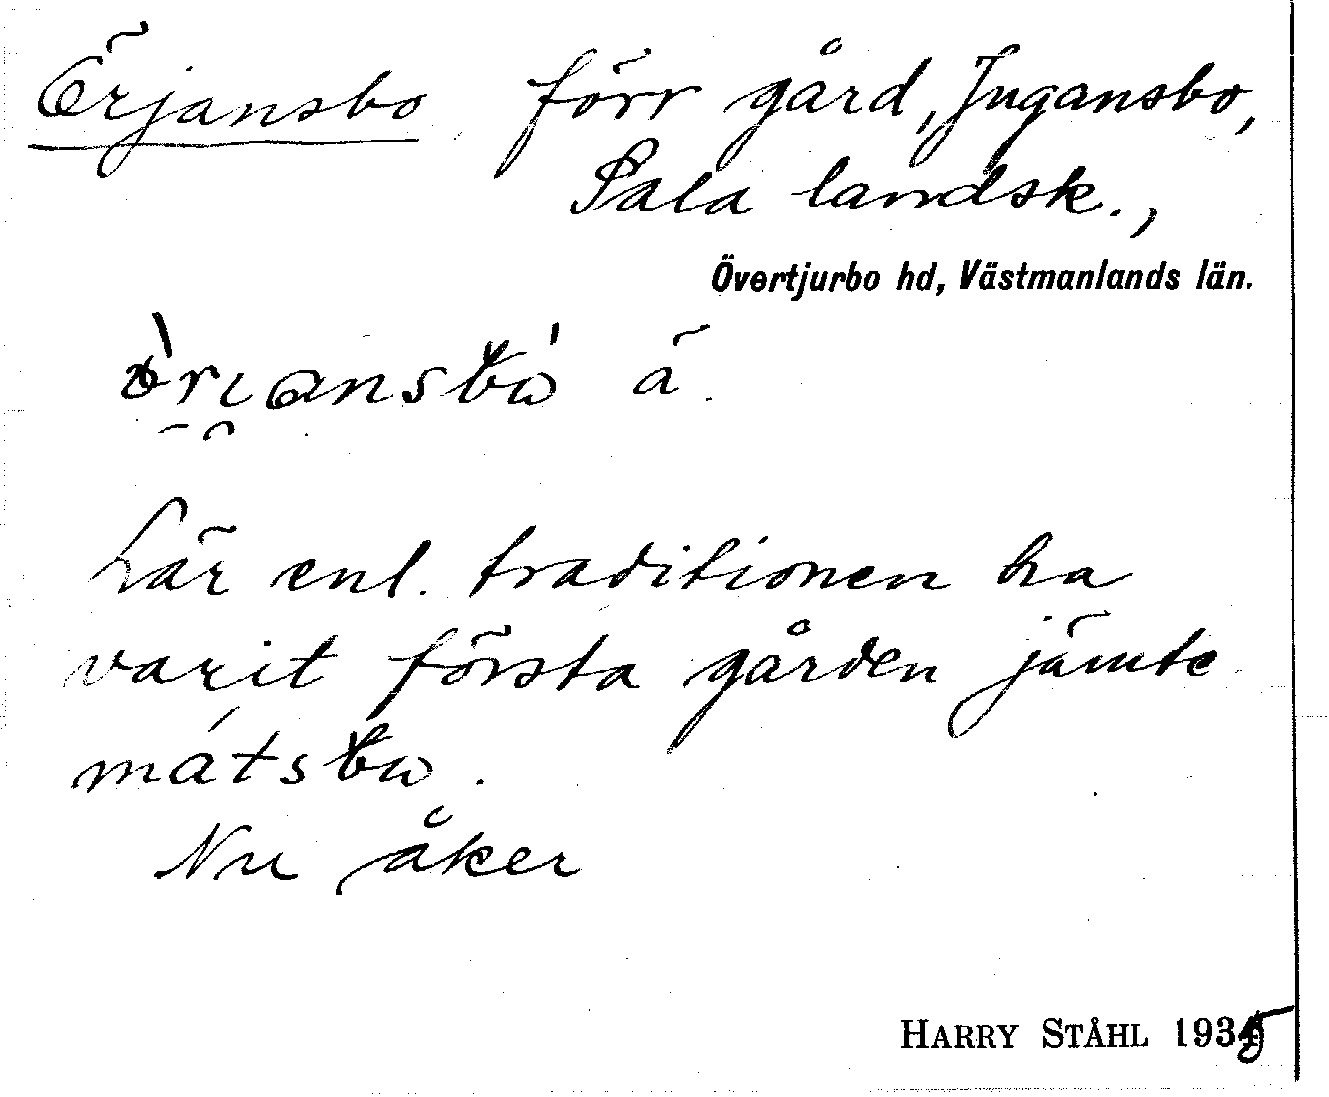 Örjansbo förr gård, Jugansbo,
Sala landsk.,
Övertjurbo hd, Västmanlands län.
ä.
Lär enl. traditionen ha
varit första gården jämte
mátsbω.
Nu åker
HARRY STÅHL 1935